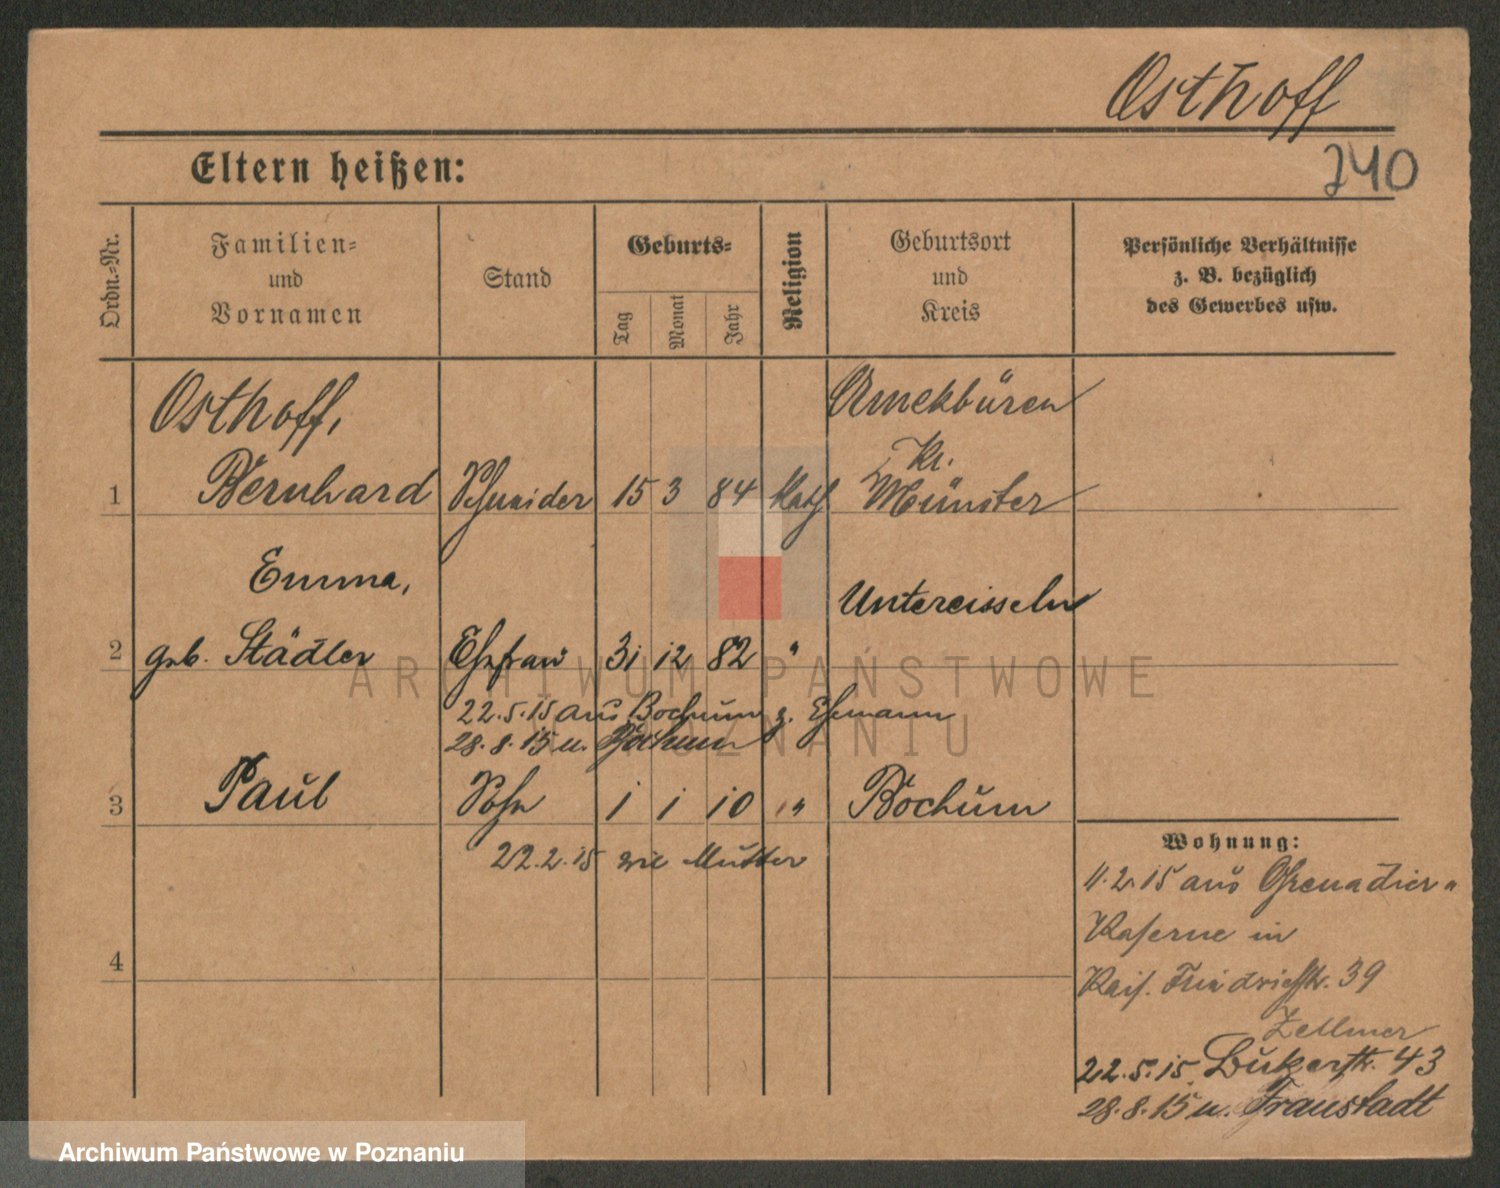 Osthoff
240
Eltern heißen:
Ordn.=Nr.
Familien=
und
Vornamen
Stand
Geburts=
Tag
Monat
Jahr
Religion
Geburtsort
und
Kreis
Persönliche Verhältnisse
z. B. bezüglich
des Gewerbes usw.
Osthoff, Amekbüren
Kr.
1 Bernhard Schneider 15 3 84 Kath Münster
Emma, Untereisseln
2 geb. Städler Ehefrau 31 12 82 "
22.5.15 aus Bochum z. Ehemann
28.8.15 n. Bochum
3 Paul Sohn 1 1 10 " Bochum
22.2.15 wie Mutter
4
Wohnung:
11.2.15 aus Grenadier=
Kaserne in
Kais. Friedrichstr. 39
Zellmer
22.5.15 43
28.8.15 n. Fraustadt
ARCHIWUM PAŃSTWOWE
POZNANIU
Archiwum Państwowe w Poznaniu